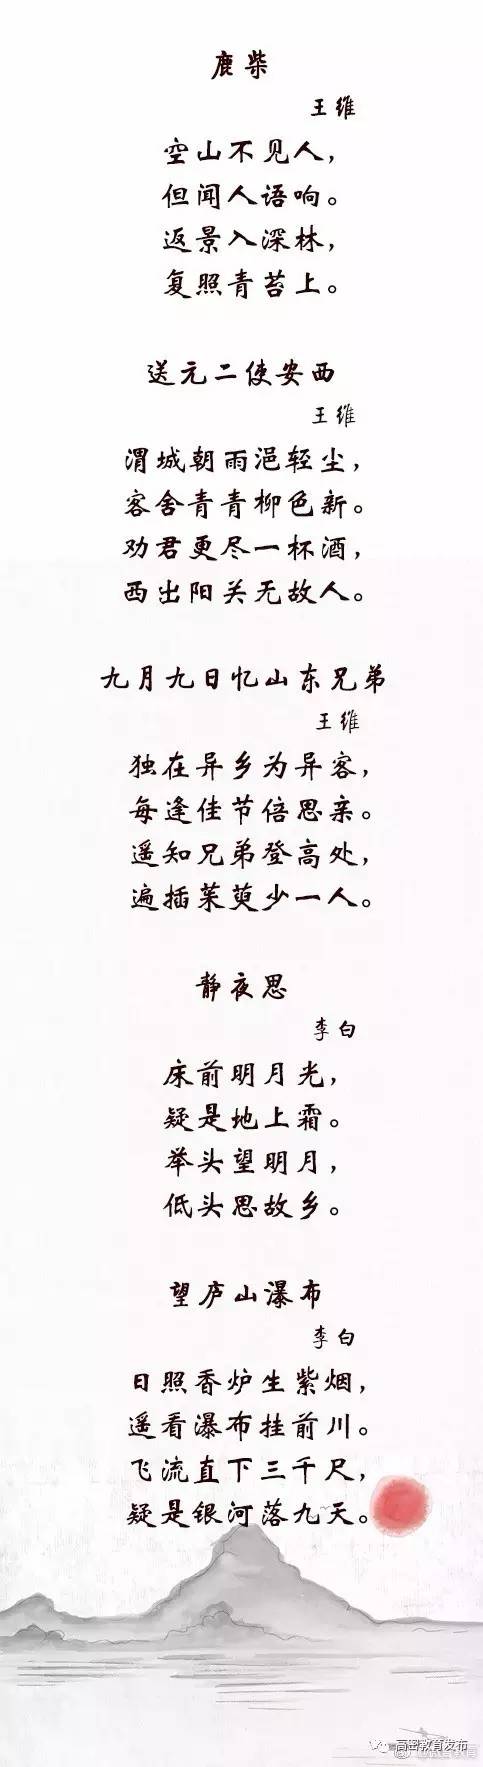 鹿柴
王维
空山不见人，
但闻人语响。
返景入深林，
复照青苔上。
送元二使安西
王维
渭城朝雨浥轻尘，
客舍青青柳色新。
劝君更尽一杯酒，
西出阳关无故人。
九月九日忆山东兄弟
王维
独在异乡为异客，
每逢佳节倍思亲。
遥知兄弟登高处，
遍插茱萸少一人。
静夜思
李白
床前明月光，
疑是地上霜。
举头望明月，
低头思故乡。
望庐山瀑布
李白
日照香炉生紫烟，
遥看瀑布挂前川。
飞流直下三千尺，
疑是银河落九天。
高密教育发布